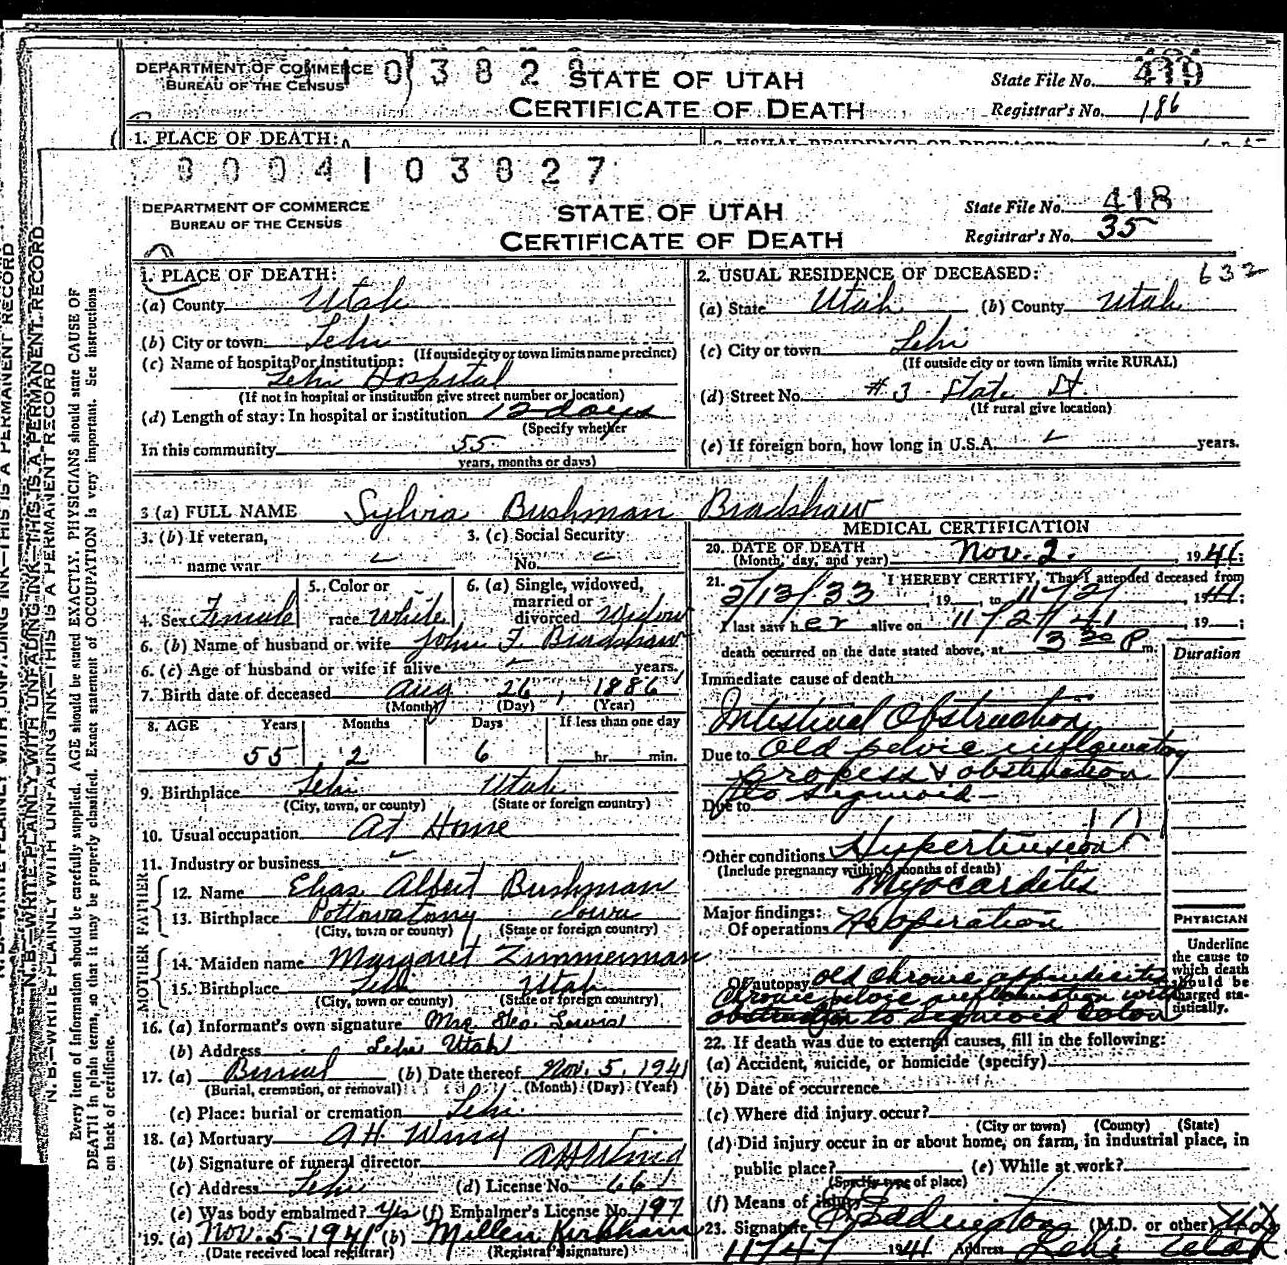 DEPARTMENT OF COMMERCE
BUREAU OF THE CENSUS
0 3 8 2 8
STATE OF UTAH
CERTIFICATE OF DEATH
State File No. 419
Registrar's No. 186
1. PLACE OF DEATH:
8 0 0 4 1 0 3 8 2 7
DEPARTMENT OF COMMERCE
BUREAU OF THE CENSUS
STATE OF UTAH
CERTIFICATE OF DEATH
State File No. 418
Registrar's No. 35
632
1. PLACE OF DEATH:
(a) County Utah
(b) City or town Lehi
(If outside city or town limits name precinct)
(c) Name of hospital or institution:
Lehi Hospital
(If not in hospital or institution give street number or location)
(d) Length of stay: In hospital or institution 12 days
(Specify whether
In this community 55
years, months or days)
2. USUAL RESIDENCE OF DECEASED:
(a) State Utah (b) County Utah
(c) City or town Lehi
(If outside city or town limits write RURAL)
(d) Street No. #3 State St.
(If rural give location)
(e) If foreign born, how long in U.S.A. years.
3 (a) FULL NAME Sylvia Bushman Bradshaw
3. (b) If veteran,
name war
3. (c) Social Security
No.
4. Sex Female
5. Color or
race White
6. (a) Single, widowed,
married or
divorced Widow
6. (b) Name of husband or wife John F. Bradshaw
6. (c) Age of husband or wife if alive years.
7. Birth date of deceased Aug 26, 1886
(Month) (Day) (Year)
8. AGE Years Months Days If less than one day
55 2 6 hr. min.
9. Birthplace Lehi Utah
(City, town, or county) (State or foreign country)
10. Usual occupation At Home
11. Industry or business
FATHER
12. Name Elias Albert Bushman
13. Birthplace Pottowatomy Iowa
(City, town or county) (State or foreign country)
MOTHER
14. Maiden name Margaret Zimmerman
15. Birthplace Lehi Utah
(City, town or county) (State or foreign country)
16. (a) Informant's own signature Mrs. Geo. Lewis
(b) Address Lehi Utah
17. (a) Burial (b) Date thereof Nov. 5, 1941
(Burial, cremation, or removal) (Month) (Day) (Year)
(c) Place: burial or cremation Lehi
18. (a) Mortuary A H Wing
(b) Signature of funeral director A H Wing
(c) Address Lehi (d) License No. 661
(e) Was body embalmed? Yes (f) Embalmer's License No. 197
19. (a) Nov. 5-1941 (b) Millen Kirkham
(Date received local registrar) (Registrar's signature)
MEDICAL CERTIFICATION
20. DATE OF DEATH
(Month, day, and year) Nov. 2. 1941:
21. I HEREBY CERTIFY, That I attended deceased from
2/13/33, 19 to 11/2/ 1941;
I last saw her alive on 11/2/41 19 ;
death occurred on the date stated above, at 3 30 P m.
Duration
Immediate cause of death
Intestinal Obstruction
Due to Old pelvic inflammatory
process & obstruction
Due to to sigmoid
Other conditions Hypertension
(Include pregnancy within 3 months of death)
Myocarditis
Major findings:
Of operations No operation
Of autopsy old chronic appendicitis
chronic pelvic inflammation with
obstruction to sigmoid colon
PHYSICIAN
Underline
the cause to
which death
should be
charged sta-
tistically.
22. If death was due to external causes, fill in the following:
(a) Accident, suicide, or homicide (specify)
(b) Date of occurrence
(c) Where did injury occur?
(City or town) (County) (State)
(d) Did injury occur in or about home, on farm, in industrial place, in
public place? (e) While at work?
(Specify type of place)
(f) Means of injury
23. Signature Eddington (M.D. or other) MD
11/4/ 1941 Address Lehi Utah
N. B.—WRITE PLAINLY WITH UNFADING INK—THIS IS A PERMANENT RECORD
Every item of information should be carefully supplied. AGE should be stated EXACTLY. PHYSICIANS should state CAUSE OF
DEATH in plain terms, so that it may be properly classified. Exact statement of OCCUPATION is very important. See instructions
on back of certificate.